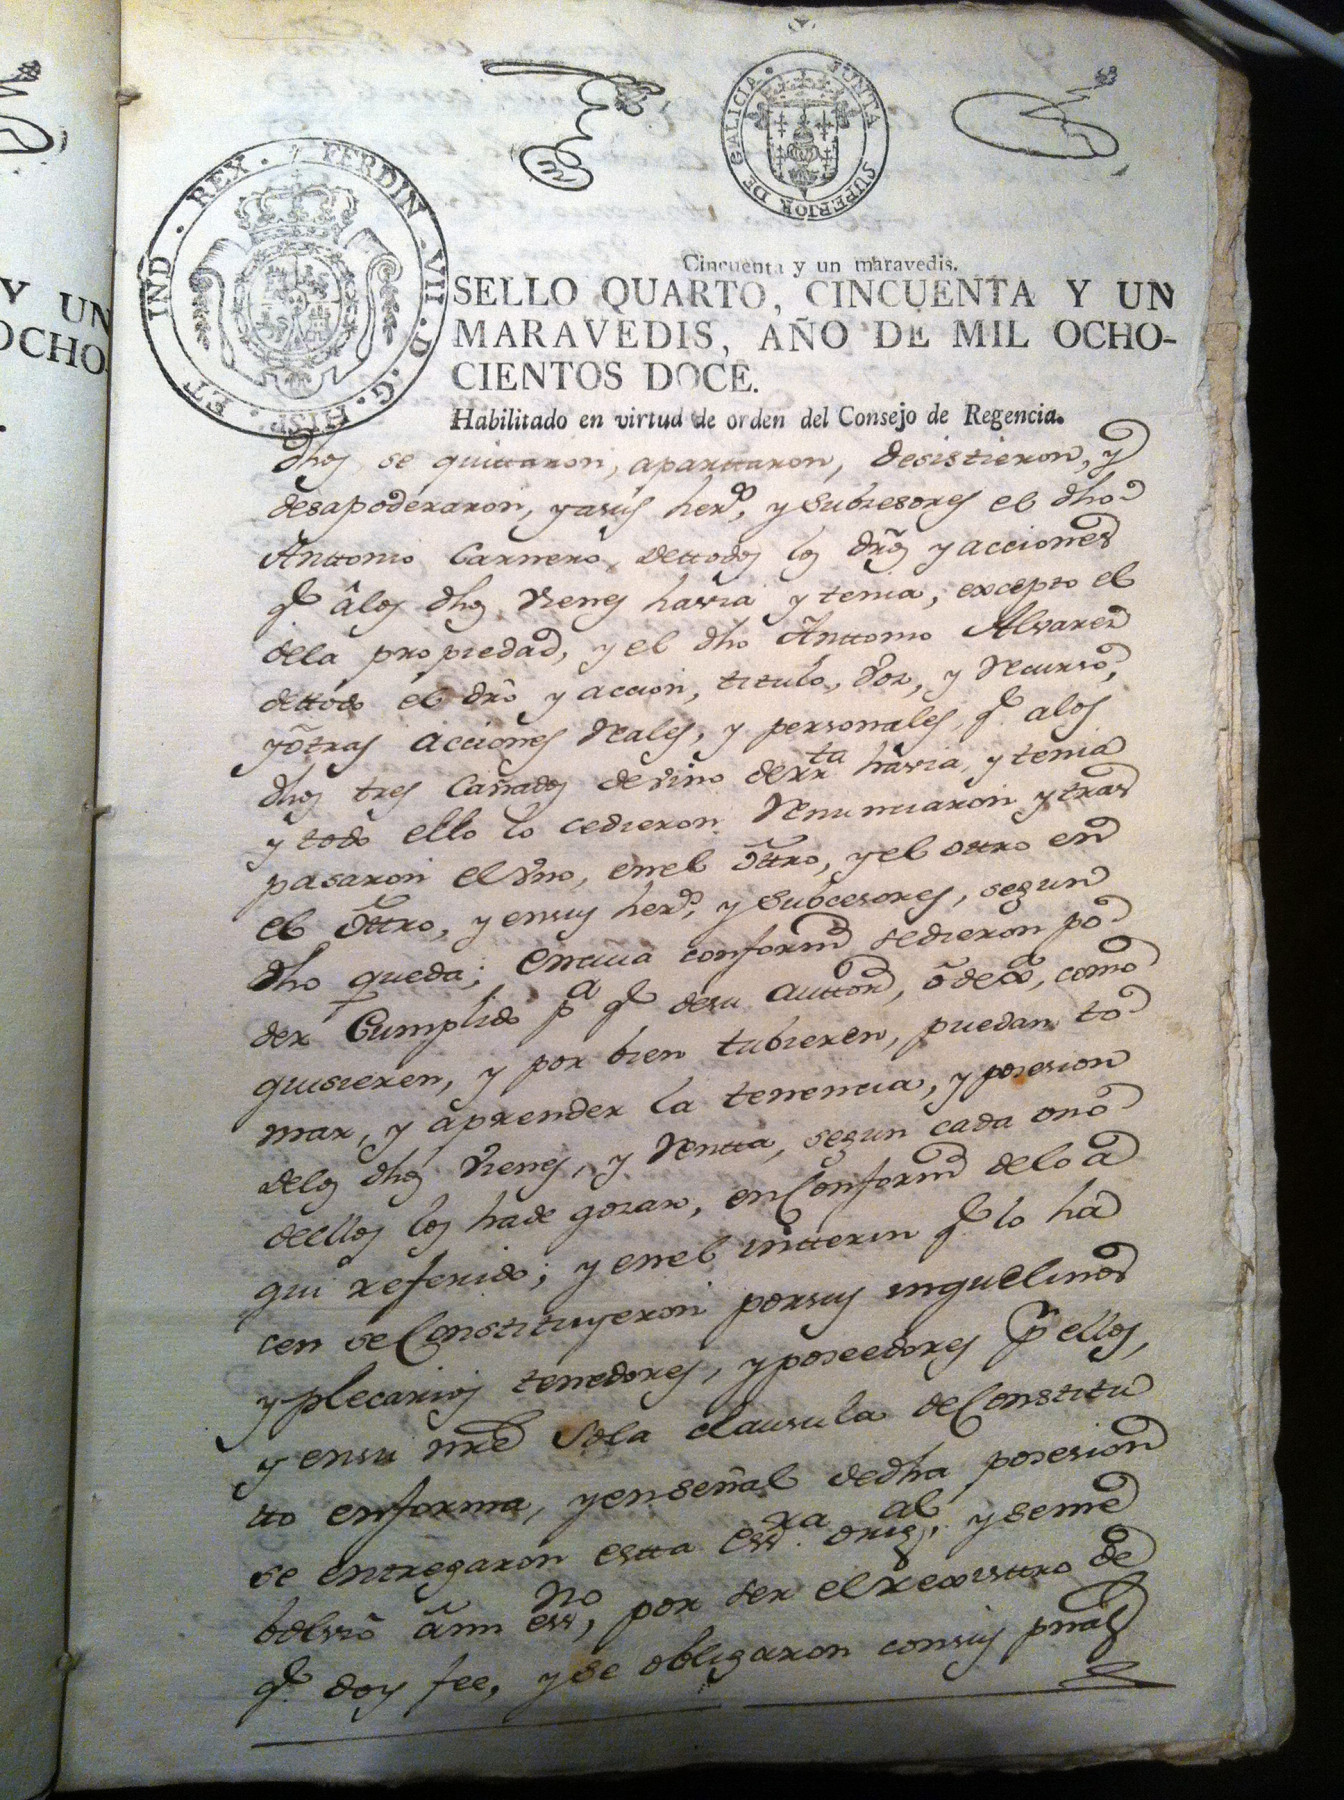 Y UN
OCHO
JUNTA SUPERIOR DE GALICIA
FERDIN . VII . D . G . HISP . ET IND . REX .
Cincuenta y un maravedis.
SELLO QUARTO, CINCUENTA Y UN
MARAVEDIS, AÑO DE MIL OCHO-
CIENTOS DOCE.
Habilitado en virtud de orden del Consejo de Regencia.
dhos se quittaron, aparttaron, desistieron, y
desapoderaron, y asus heros, y Subcesores el dho
Anttonio Carnero, dettodos los dros y acciones
q.e â los dhos Vienes havia y tenia, excepto el
dela propiedad, y el dho Anttonio Alvarez
dettodo el dro y accion, titulo, voz, y Recurso,
y ôtras acciones Reales, y personales, q.e alos
dhos tres Cañados de vino de rta havia, y tenia
y todo ello lo cedieron Renunciaron y tras
pasaron el Vno, en el ôttro, y el ottro en
el ôttro, y ensus heros, y Subcesores, segun
dho queda; en cuia conformd sedieron po
der Cumplido pa q.e desu auttord, ô de, como
quisieren, y por bien tubieren, puedan to
mar, y aprender la tenencia, y posesion
delos dhos Vienes, y Rentta, segun cada ono
dellos los hade gozar, en Conformd delo a
qui referido; y en el intterin q.e lo ha
cen se Constituyeron porsus inquelinos
y plecarios tenedores, y poseedores pr ellos,
y ensu nre Sola clausula de Constitu
tto enforma, y enseñal dedha posesion
se entregaron estta essra orig.al, y seme
bolvio âmi essno, por ser el rexisttro de
q.e doy fee, y se obligaron consus pnas